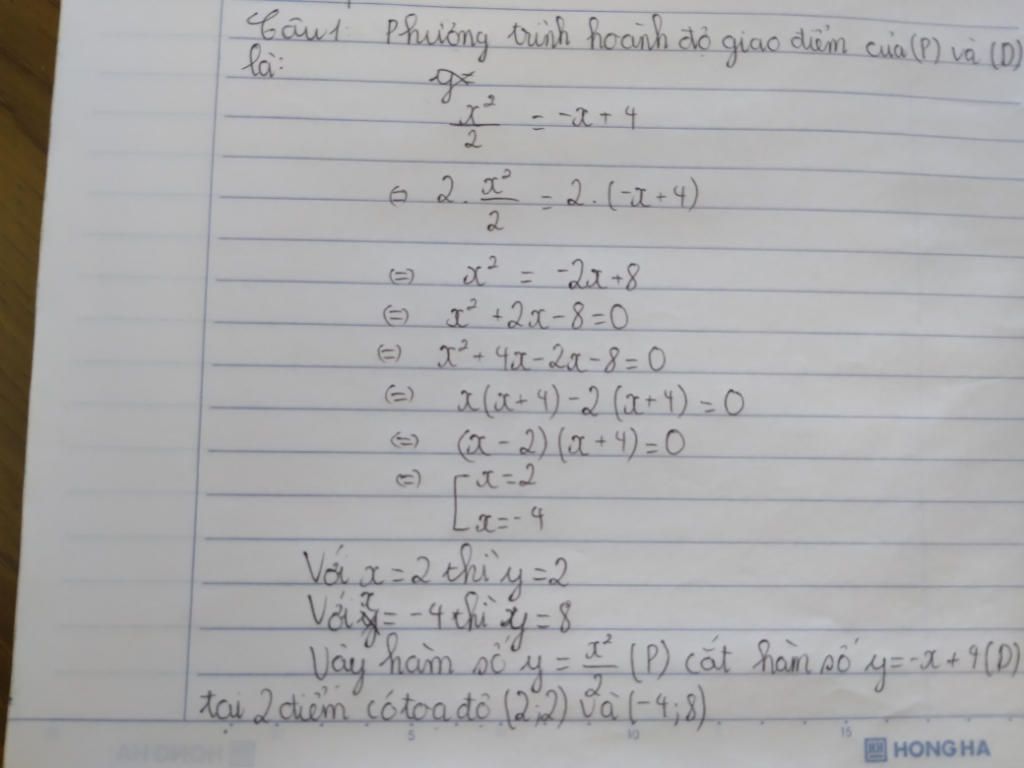 Câu 1: Phương trình hoành độ giao điểm của (P) và (D)
là:
x²/2 = -x + 4
⇔ 2 . x²/2 = 2 . (-x + 4)
(=) x² = -2x + 8
(=) x² + 2x - 8 = 0
(=) x² + 4x - 2x - 8 = 0
(=) x(x + 4) - 2(x + 4) = 0
(=) (x - 2)(x + 4) = 0
(=) [ x = 2
x = -4
Với x = 2 thì y = 2
Với x = -4 thì y = 8
Vậy hàm số y = x²/2 (P) cắt hàm số y = -x + 4 (D)
tại 2 điểm có toạ độ (2;2) và (-4;8)
5 10 15
HONG HA